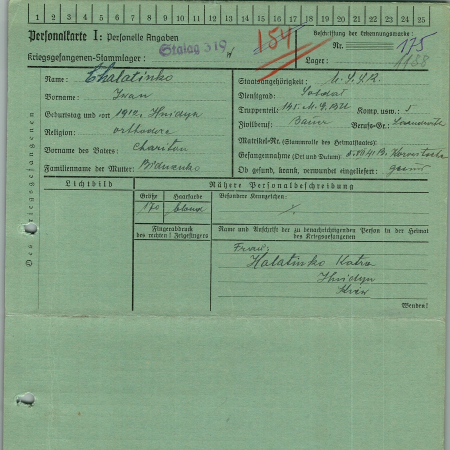 1 2 3 4 5 6 7 8 9 10 11 12 13 14 15 16 17 18 19 20 21 22 23 24 25
Personalkarte I: Personelle Angaben
Kriegsgefangenen-Stammlager: Stalag 319
154
Beschriftung der Erkennungsmarke
Nr. 175
Lager:
Des Kriegsgefangenen
Name: Chalatinko
Vorname: Iwan
Geburtstag und -ort 1912, Hnidyn
Religion: orthodox
Vorname des Vaters: Chariton
Familienname der Mutter:
Staatsangehörigkeit: U.S.S.R.
Dienstgrad: Soldat
Truppenteil: Komp. usw.: 5
Zivilberuf: Bauer Berufs-Gr.:
Matrikel Nr. (Stammrolle des Heimatstaates):
Gefangennahme (Ort und Datum):
Ob gesund, krank, verwundet eingeliefert: gesund
Lichtbild
Nähere Personalbeschreibung
Größe Haarfarbe Besondere Kennzeichen:
170 blond
Fingerabdruck
des rechten! Zeigefingers
Name und Anschrift der zu benachrichtigenden Person in der Heimat
des Kriegsgefangenen
Frau:
Halatinko Katra
Hnidyn
Wenden!